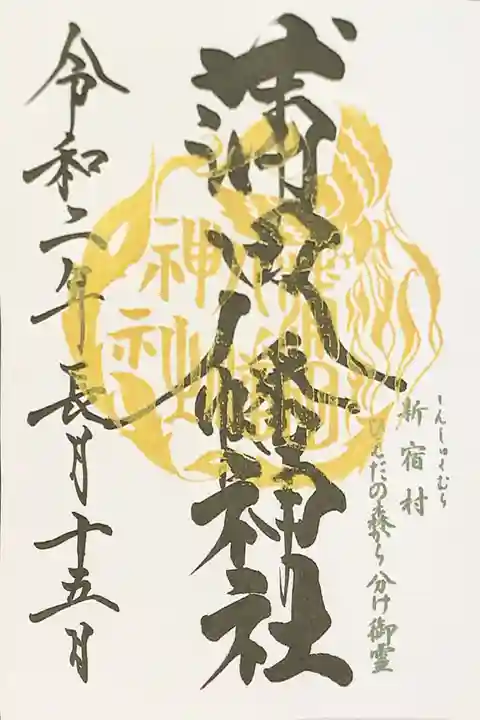 しんしゅくむら
新宿村
ひえだの森から分け御霊
蒲田八幡神社
神社
令和二年長月十五日